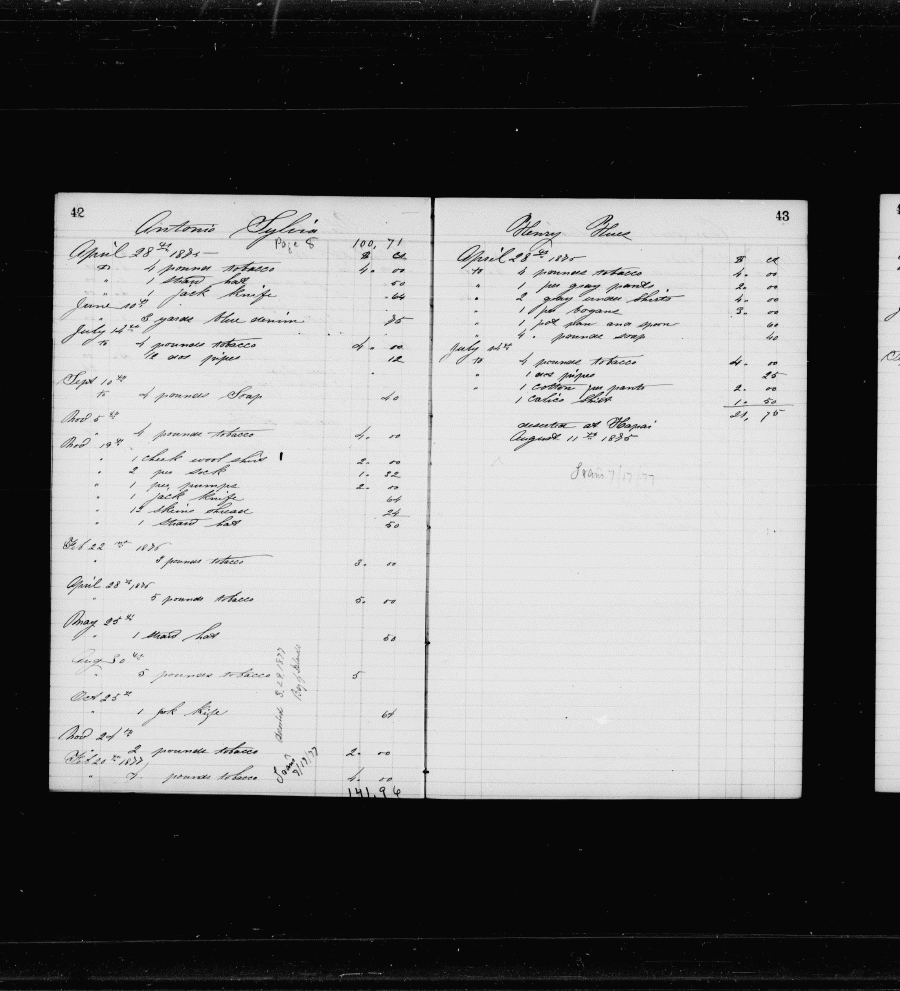 42
Antonio Sylvia
Page 8 100,71
April 28th 1875 $ cts
to 4 pounds tobacco 4. 00
" 1 straw hat 50
" 1 jack knife .64
June 10th
" 3 yards blue denim 75
July 14th
to 4 pounds tobacco 4. 00
1/2 dos pipes 12
Sept 10th
to 4 pounds Soap 40
Nov 5th
" 4 pounds tobacco 4. 00
Nov 19th
" 1 check wool shirt 2. 00
" 2 per sock 1. 22
" 1 per pumps 2. 00
" 1 jack knife 64
" 12 skeins thread 24
" 1 straw hat 50
Feb 22 1876
" 3 pounds tobacco 3. 00
April 28th, 1876
" 5 pounds tobacco 5. 00
May 25th
" 1 straw hat 50
Aug 30th
" 5 pounds tobacco 5
Oct 25th
" 1 jack knife 64
Nov 24th
2 pounds tobacco 2. 00
Feb 20th 1877
" 4 pounds tobacco 4. 00
141,96
deserted 3.29.1877
Bay of Islands
Trans
7/17/77
43
Henry
April 28th 1875 $ cts
to 4 pounds tobacco 4. 00
" 1 per gray pants 2. 00
" 2 gray under shirts 4. 00
" 1 pr bogans 3. 00
" 1 pot pan and spoon 60
" 4 . pounds soap 40
July 14th
to 4 pounds tobacco 4. 00
" 1 dos pipes 25
" 1 cotton per pants 2. 00
1 calico shirt 1. 50
21, 75
deserted at Hapai
August 11th 1875
Trans 7/17/77